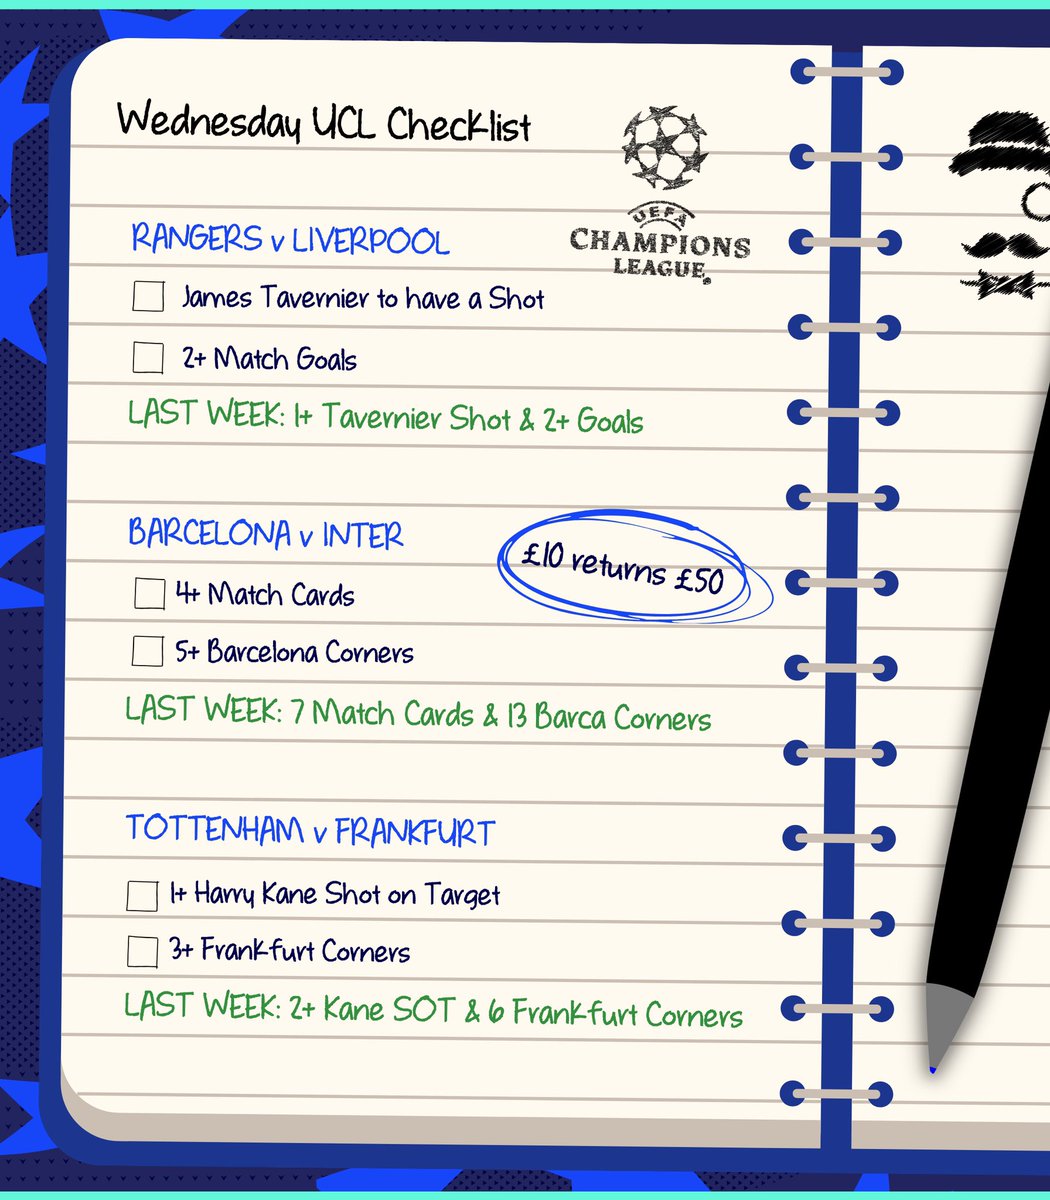 Wednesday UCL Checklist
UEFA
CHAMPIONS
LEAGUE
RANGERS v LIVERPOOL
James Tavernier to have a Shot
2+ Match Goals
LAST WEEK: 1+ Tavernier Shot & 2+ Goals
BARCELONA v INTER
£10 returns £50
4+ Match Cards
5+ Barcelona Corners
LAST WEEK: 7 Match Cards & 13 Barca Corners
TOTTENHAM v FRANKFURT
1+ Harry Kane Shot on Target
3+ Frankfurt Corners
LAST WEEK: 2+ Kane SOT & 6 Frankfurt Corners